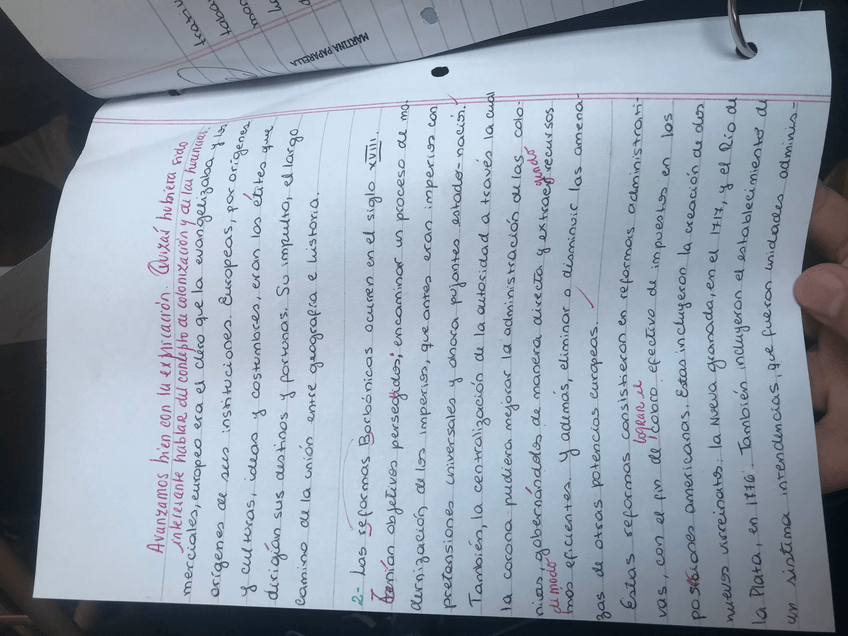 MARTINA PAPARELLA
Avanzamos bien con la explicación. Quizás hubiera sido
interesante hablar del concepto de colonización y de las
merciales, europeo era el clero que la evangelizaba y los
orígenes de sus instituciones. Europeas, por orígenes
y culturas, ideas y costumbres, eran las élites que
dirigían sus destinos y fortunas. Su impulto, el largo
camino de la unión entre geografía e historia.
2- Las reformas Borbónicas ocurren en el siglo XVIII.
Tenían objetivos persegidos; encaminar un proceso de mo-
dernización de los imperios, que antes eran imperios con
pretensiones universales y ahora pujantes estados-nación.
También, la centralización de la autoridad a través la cual
la corona pudiera mejorar la administración de las colo-
nias, gobernándolas de manera directa y extrayendo recursos
de modo
más eficientes. Y además, eliminar o disminuir las amena-
zas de otras potencias europeas.
Estas reformas consistieron en reformas administrati-
lograr el
vas, con el fin de cobro efectivo de impuestos en las
posesiones americanas. Estas incluyeron la creación de dos
nuevos virreinatos: la Nueva granada, en el 1717, y el Río de
la Plata, en 1776. También incluyeron el establecimiento de
un sistema intendencias, que fueron unidades adminis-